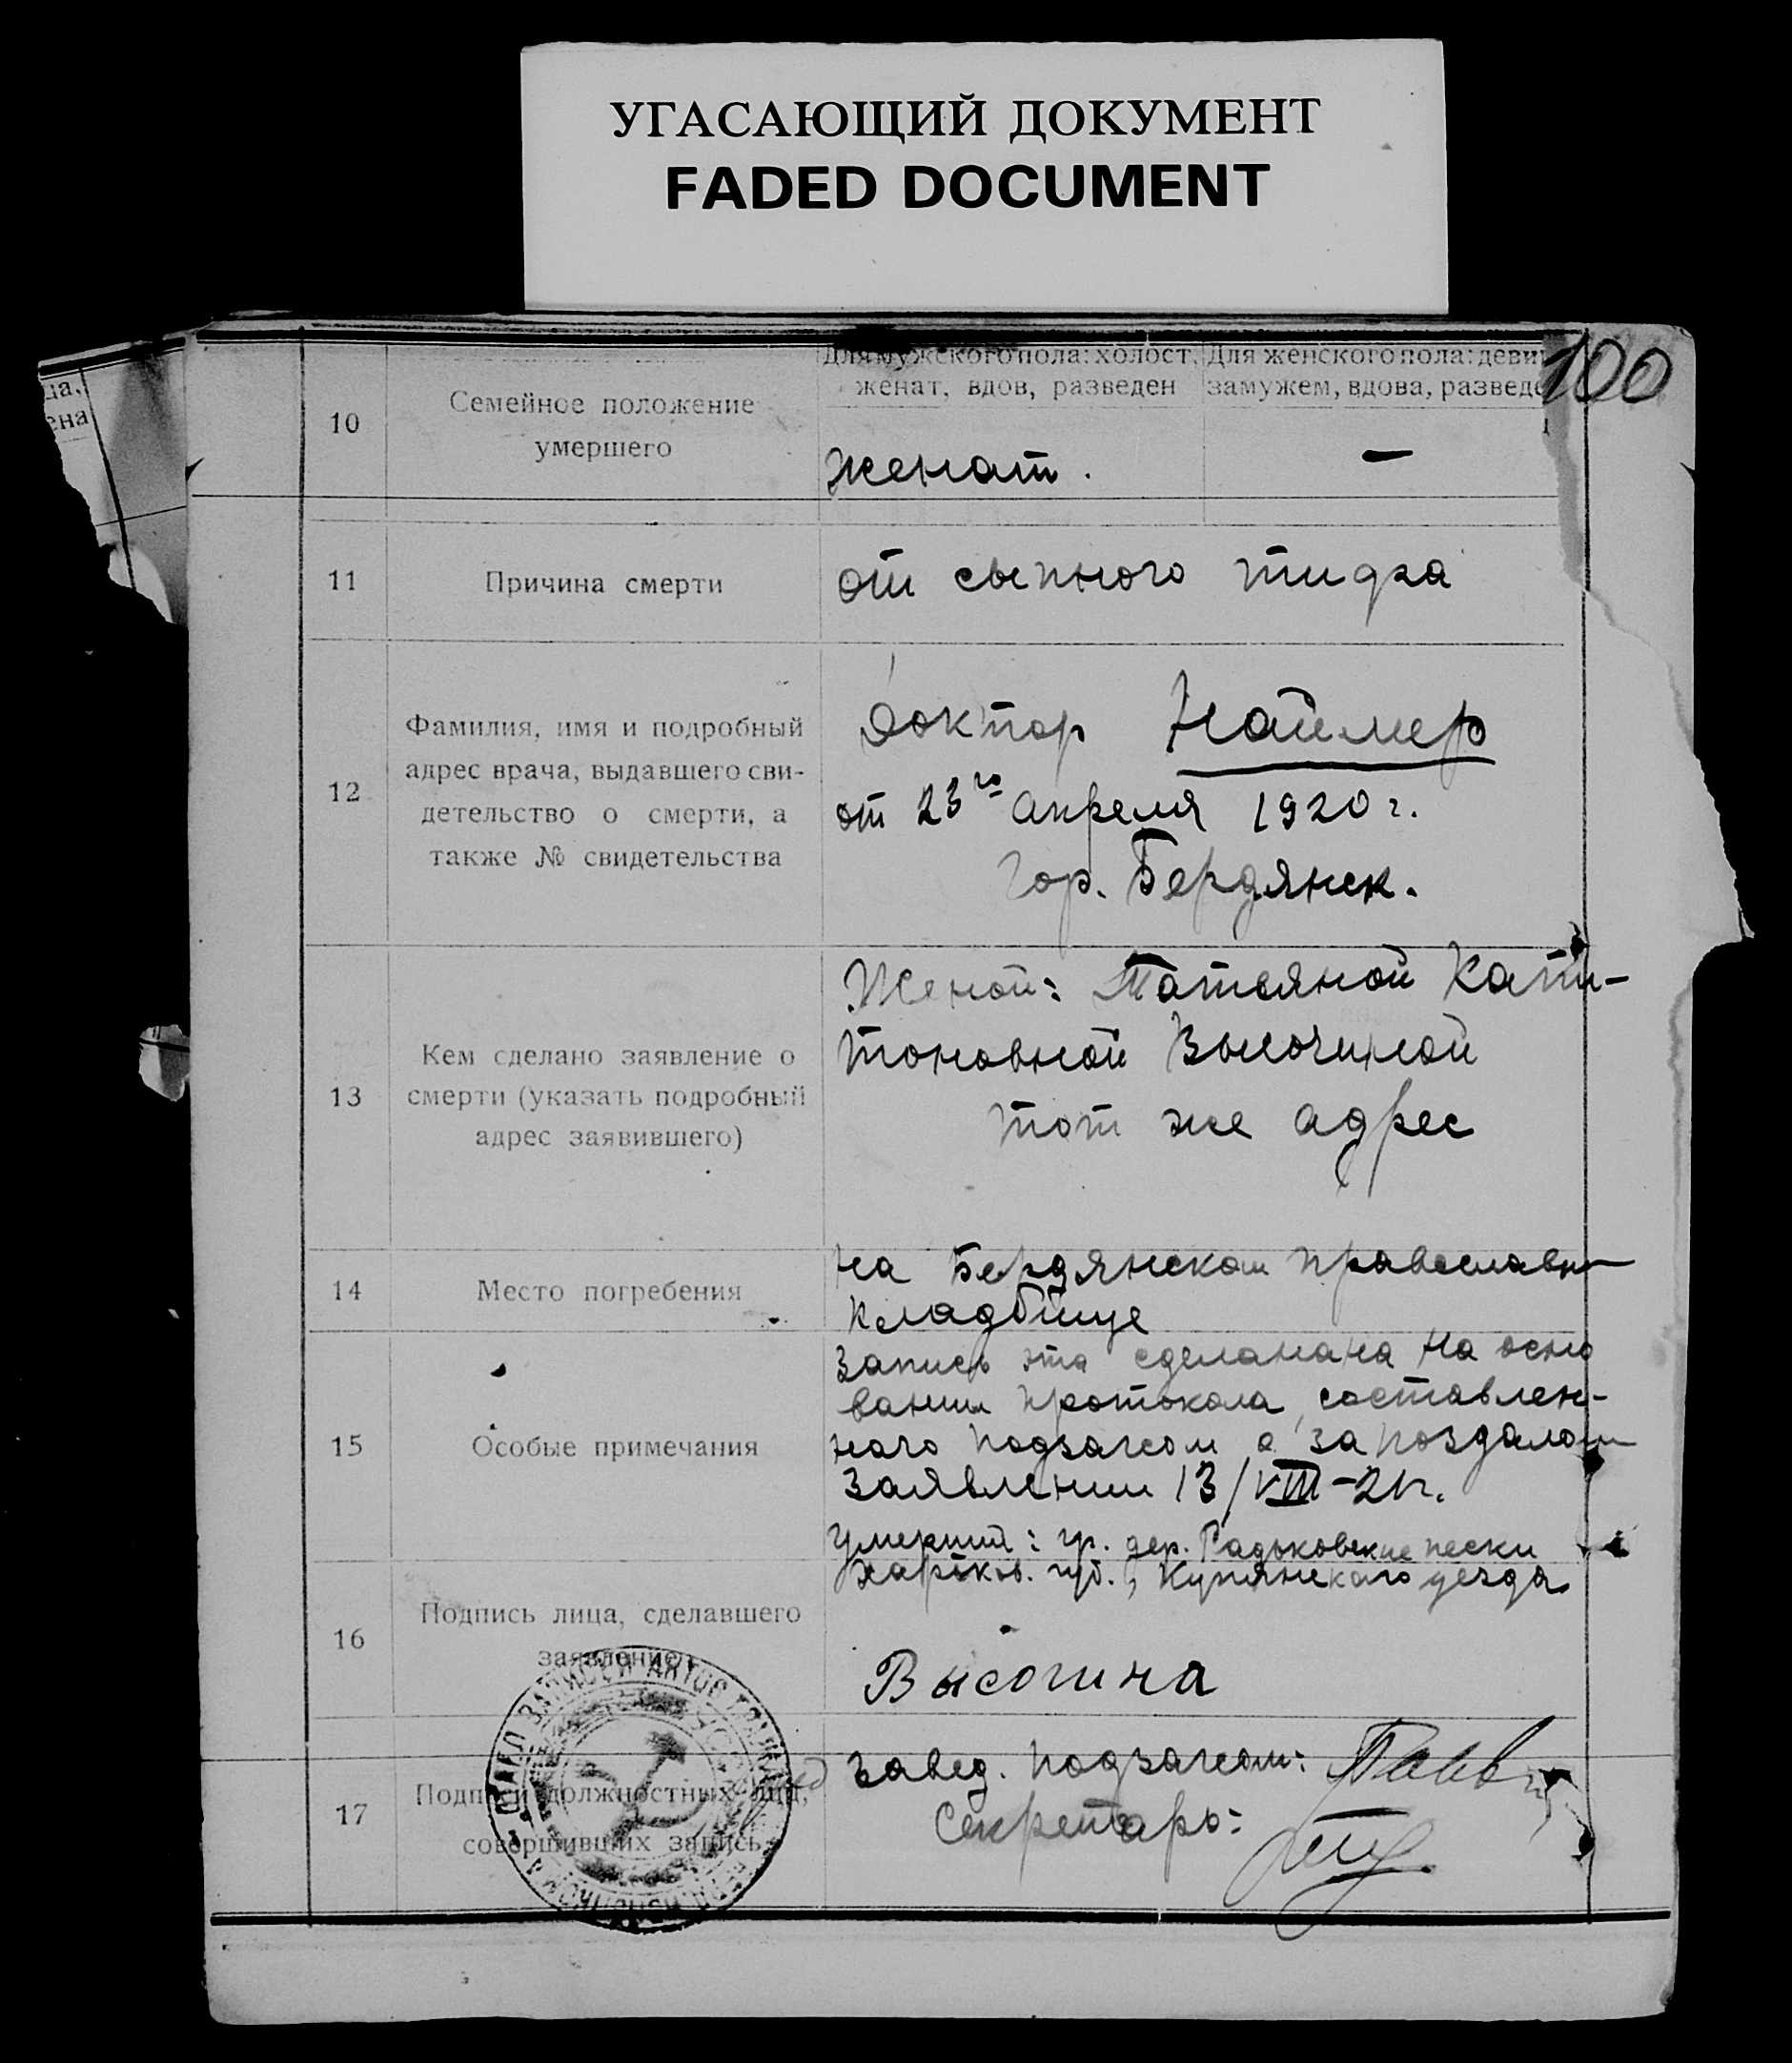 УГАСАЮЩИЙ ДОКУМЕНТ
FADED DOCUMENT
100
ца,
ена
10
Семейное положение
умершего
Для мужского пола: холост,
женат, вдов, разведен
Для женского пола: деви
замужем, вдова, разведе
женат.
—
11
Причина смерти
от сыпного тифа
12
Фамилия, имя и подробный
адрес врача, выдавшего сви-
детельство о смерти, а
также № свидетельства
Доктор Наймер
от 23го апреля 1920 г.
гор. Бердянск.
13
Кем сделано заявление о
смерти (указать подробный
адрес заявившего)
Женой: Татьяной Капи-
тоновной Высочиной
тот же адрес
14
Место погребения
на Бердянском православн
кладбище
15
Особые примечания
Запись эта сделанана на осно
вании протокола, составлен-
ного подзагсом о запоздалом
заявлении 13/VIII-21г.
Умерший: гр. дер. Радьковские пески
Харьков. губ., Купянского уезда
16
Подпись лица, сделавшего
заявление
Высочина
17
Подписи должностных лиц,
совершивших запись
Завед. подзагсом:
Секретарь:
ЗАПИСЕЙ АКТОВ